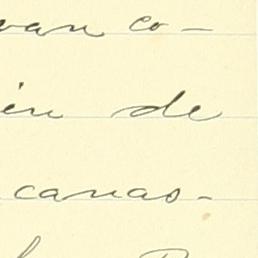 van co-
in de
canas-